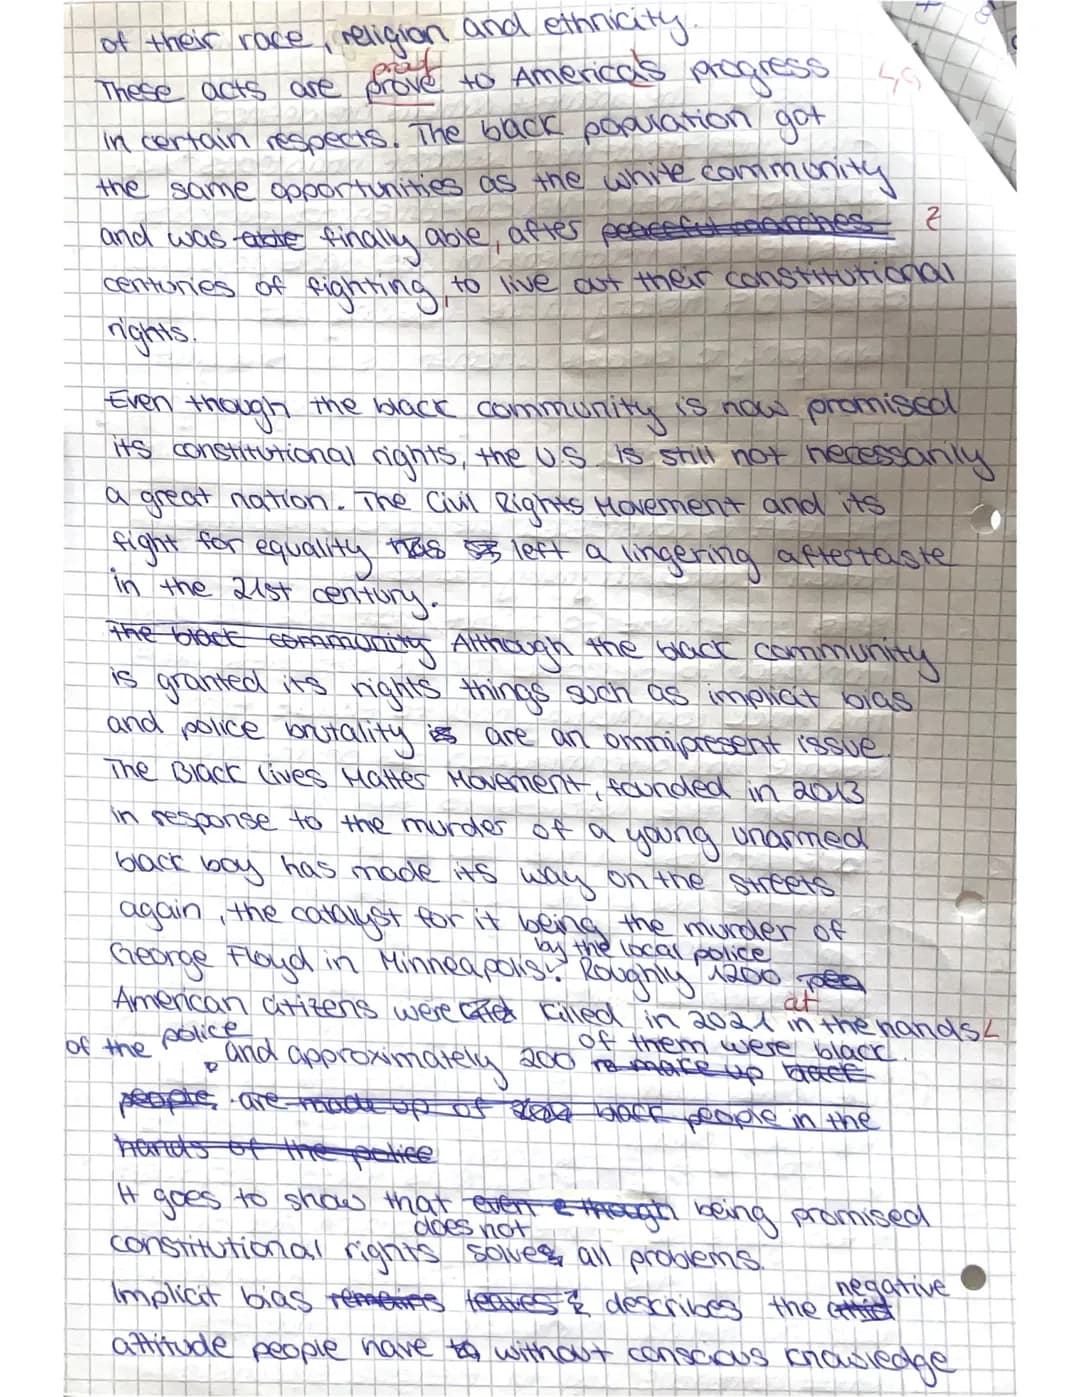 of their race, religion and ethnicity.
proof
These acts are prove to America's progress
in certain respects. The back population got
the same opportunities as the white community
and was able finally able, after peaceful marches
centuries of fighting, to live out their constitutional
rights.
Even though the black community is now promised
its constitutional rights, the U.S. is still not necessarily
a great nation. The Civil Rights Movement and its
fight for equality has left a lingering aftertaste
in the 21st century.
The black community Although the black community
is granted its rights things such as implicit bias
and police brutality is are an omnipresent issue.
The Black Lives Matter Movement, founded in 2013
in response to the murder of a young unarmed
black boy has made its way on the streets
again, the catalyst for it being the murder of
by the local police
George Floyd in Minneapolis. Roughly 1200
at
American citizens were killed in 2021 in the hands
of the police of them were black.
and approximately 200 make up black
people, are made up of black people in the
hands of the police
It goes to show that even though being promised
does not
constitutional rights solves all problems.
negative
Implicit bias remains leaves describes the
attitude people have to without conscious knowledge